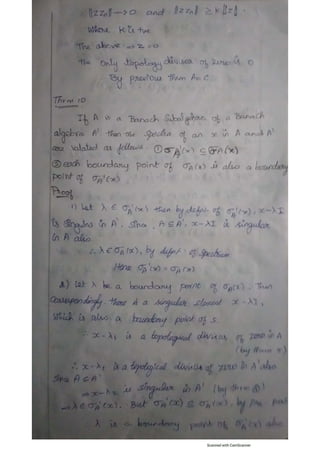 ‖zzn‖ → 0 and ‖zzn‖ ≥ K‖z‖.
where K is +ve
The above ⇒ z = 0
The only topology divisor of zero is 0
By previous Thm A=C.
Thrm: 10
If A is a Banach Subalgebra of a Banach
algebra A' then the Spectra of an x in A and A'
are related as follows ① σA'(x) ⊆ σA(x)
② each boundary point of σA(x) is also a boundary
point of σA'(x)
Proof
1) Let λ ∈ σA'(x) then by defn of σA'(x), x-λI
is singular in A'. Since, A ⊆ A', x-λI is singular
in A also
∴ λ ∈ σA(x), by defn: of Spectrum
Hence σA'(x) = σA(x)
2) Let λ be a boundary point of σA(x). Then
correspondingly there A a singular element x-λI,
which is also a boundary point of S.
∴ x-λI is a topological divisor of zero in A
(by thrm
∴ x-λI is a topological divisor of zero in A' also
Since A ⊆ A'
⇒ x-λI is singular in A' (by thrm
⇒ λ ∈ σA'(x). But σA'(x) ⊆ σA(x), by
λ is a boundary point of σA'(x) also
Scanned with CamScanner